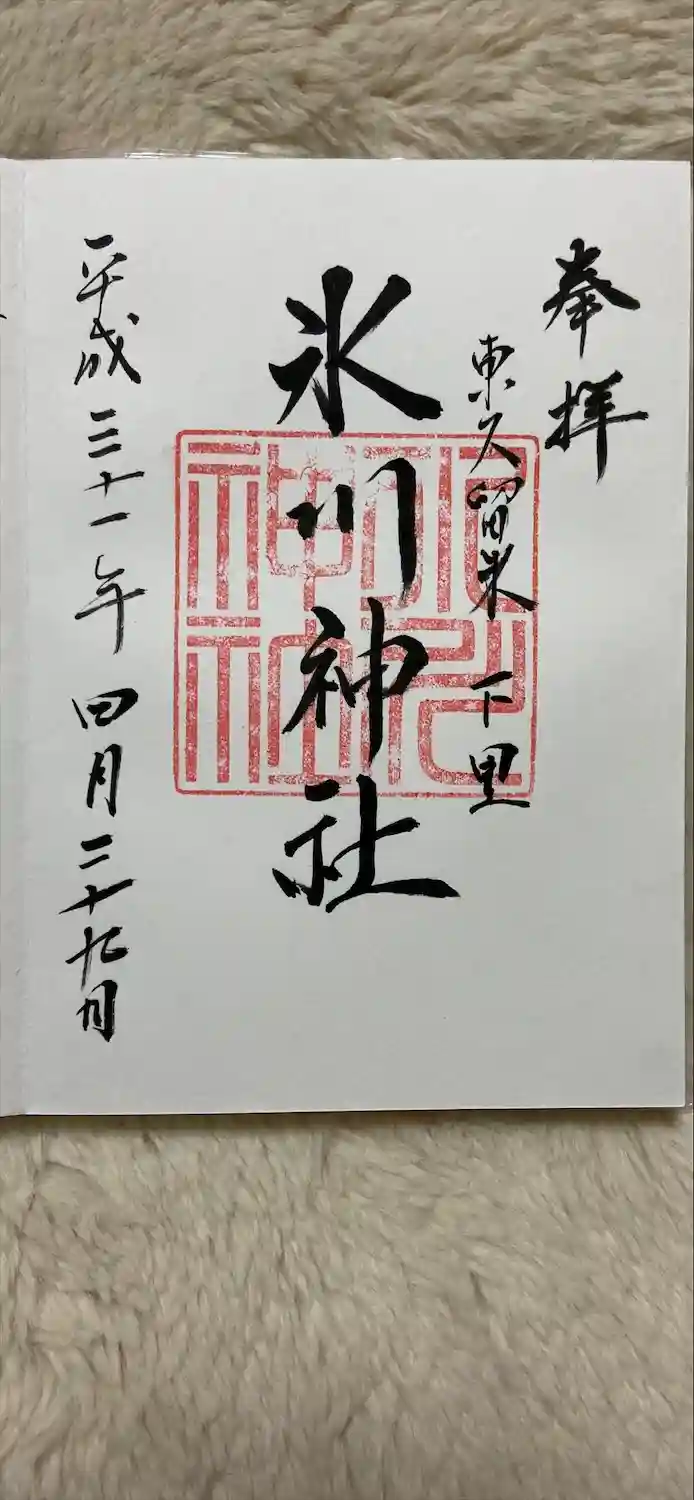 奉拝
東久留米 下里
氷川神社
氷川神社
平成三十一年四月二十九日